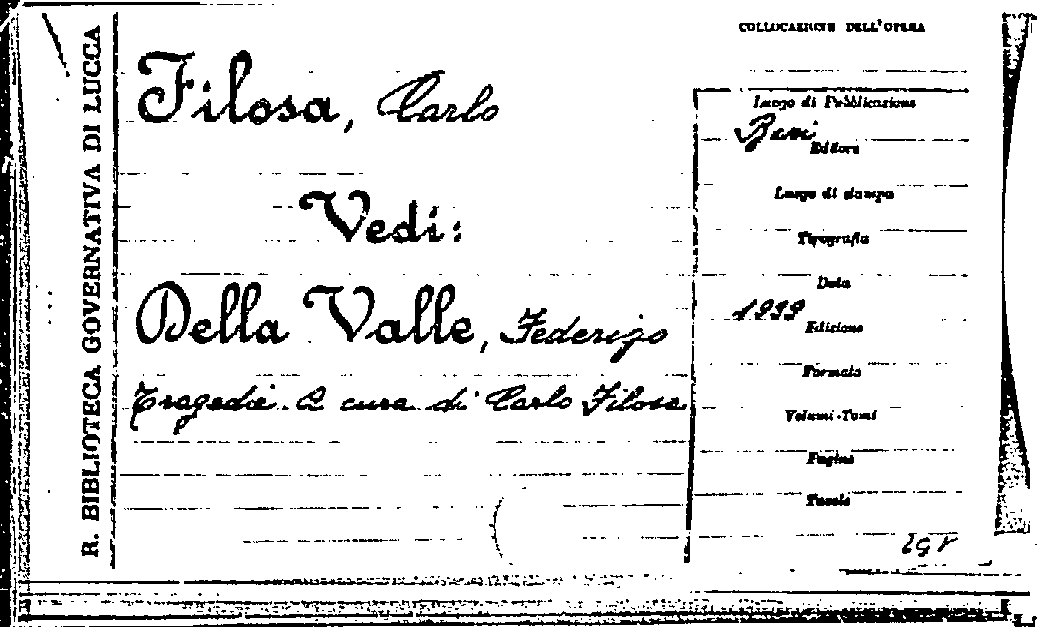 R. BIBLIOTECA GOVERNATIVA DI LUCCA
Filosa, Carlo
Vedi:
Della Valle, Federigo
Tragedie. A cura di Carlo Filosa
COLLOCAZIONE DELL'OPERA
Luogo di Pubblicazione
Bari
Editore
Luogo di stampa
Tipografia
Data
1939
Edizione
Formato
Volumi-Tomi
Pagine
Tavole